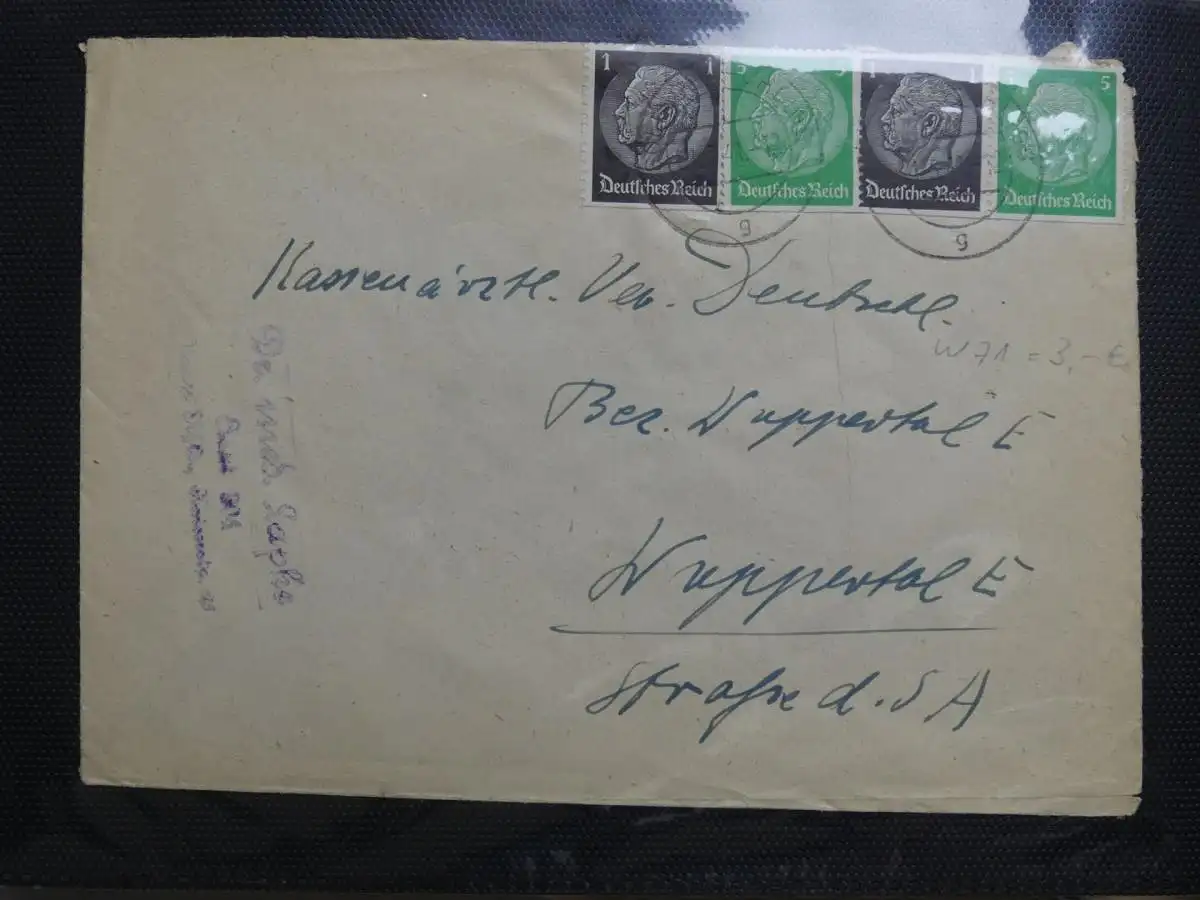 1 1 5 5 1 1 5
Deutsches Reich Deutsches Reich Deutsches Reich Deutsches Reich
g g
Kassenärztl. Ver. Deutschl.
W 71 = 3,- €
Bez. Wuppertal E
Wuppertal E
Straße d. SA
Dr. med.